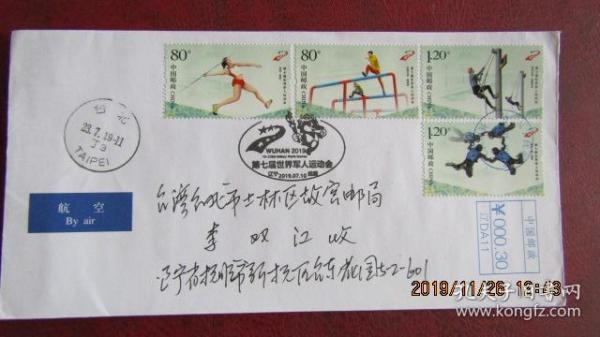 80分
中国邮政
CHINA
80分
中国邮政
CHINA
1.20元
中国邮政
CHINA
1.20元
中国邮政
CHINA
台北
23.7.19-11
TAIPEI
WUHAN 2019
第七届世界军人运动会
辽宁 2019.07.10
航空
By air
台湾台北市士林区故宫邮局
李双江收
辽宁省抚顺市新抚区台东花园5-2-601
中国邮政
¥000.30
辽DA11
2019/11/26
孔夫子旧书网
kongfz.com